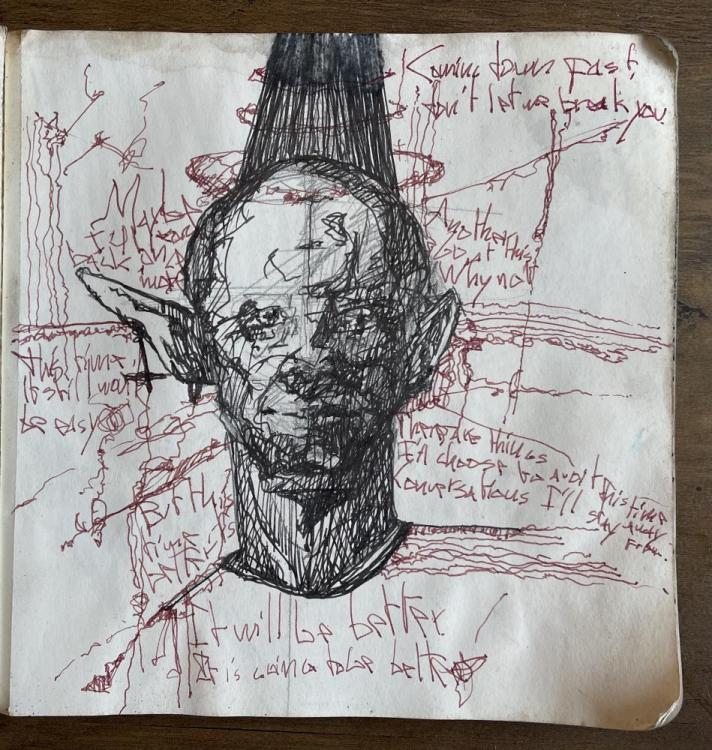 Coming down fast,
don't let me break you
Maybe
I'll
back and
Another this
go at
Why not
This time
It still won't
be easy
There are things
I'll choose to avoid this time
Conversations I'll stay away
from.
But this
time
better
It will be better
It is going to be better